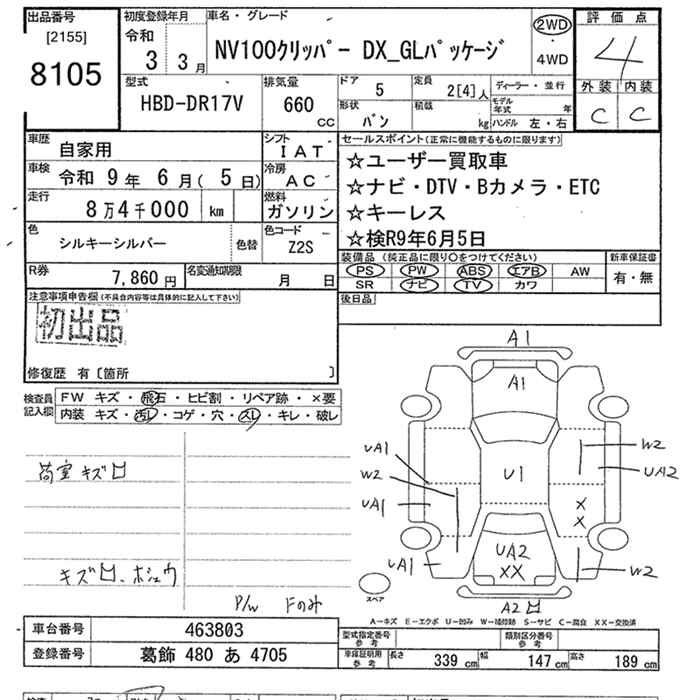 出品番号
[2155]
8105
初度登録年月
令和
3 3月
車名・グレード
NV100クリッパー DX_GLパッケージ
2WD
・
4WD
評価点
4
外装 内装
C C
型式
HBD-DR17V
排気量
660
CC
ドア
5
定員
2[4]人
ディーラー・並行
形状
バン
積載
kg
モデル年式 年
ハンドル 左・右
車歴
自家用
シフト
IAT
車検
令和 9年 6月( 5日)
冷房
AC
走行
8万4千000 km
燃料
ガソリン
色
シルキーシルバー
色替
色コード
Z2S
R券
7,860円
名変通知期限
月 日
セールスポイント(正常に機能するものに限ります)
☆ユーザー買取車
☆ナビ・DTV・Bカメラ・ETC
☆キーレス
☆検R9年6月5日
装備品(純正品に限り○をつけてください)
PS PW ABS エアB AW
SR ナビ TV カワ
新車保証書
有・無
後日品
注意事項申告欄(不具合内容等は具体的に記入して下さい)
初出品
修復歴 有〔箇所 〕
検査員記入欄
FW キズ・飛石・ヒビ割・リペア跡・×要
内装 キズ・汚レ・コゲ・穴・スレ・キレ・破レ
荷室キズ
キズ
P/W Fのみ
A1
A1
UA1
W2
W2
UA2
U1
UA1
X
X
UA1
UA2
XX
W2
スペア
A2
A−キズ E−エクボ U−凹み W−補修跡 S−サビ C−腐食 XX−交換済
車台番号
463803
登録番号
葛飾 480 あ 4705
型式指定番号
参考
類別区分番号
参考
車庫証明用
参考
長さ
339 cm
幅
147 cm
高さ
189 cm